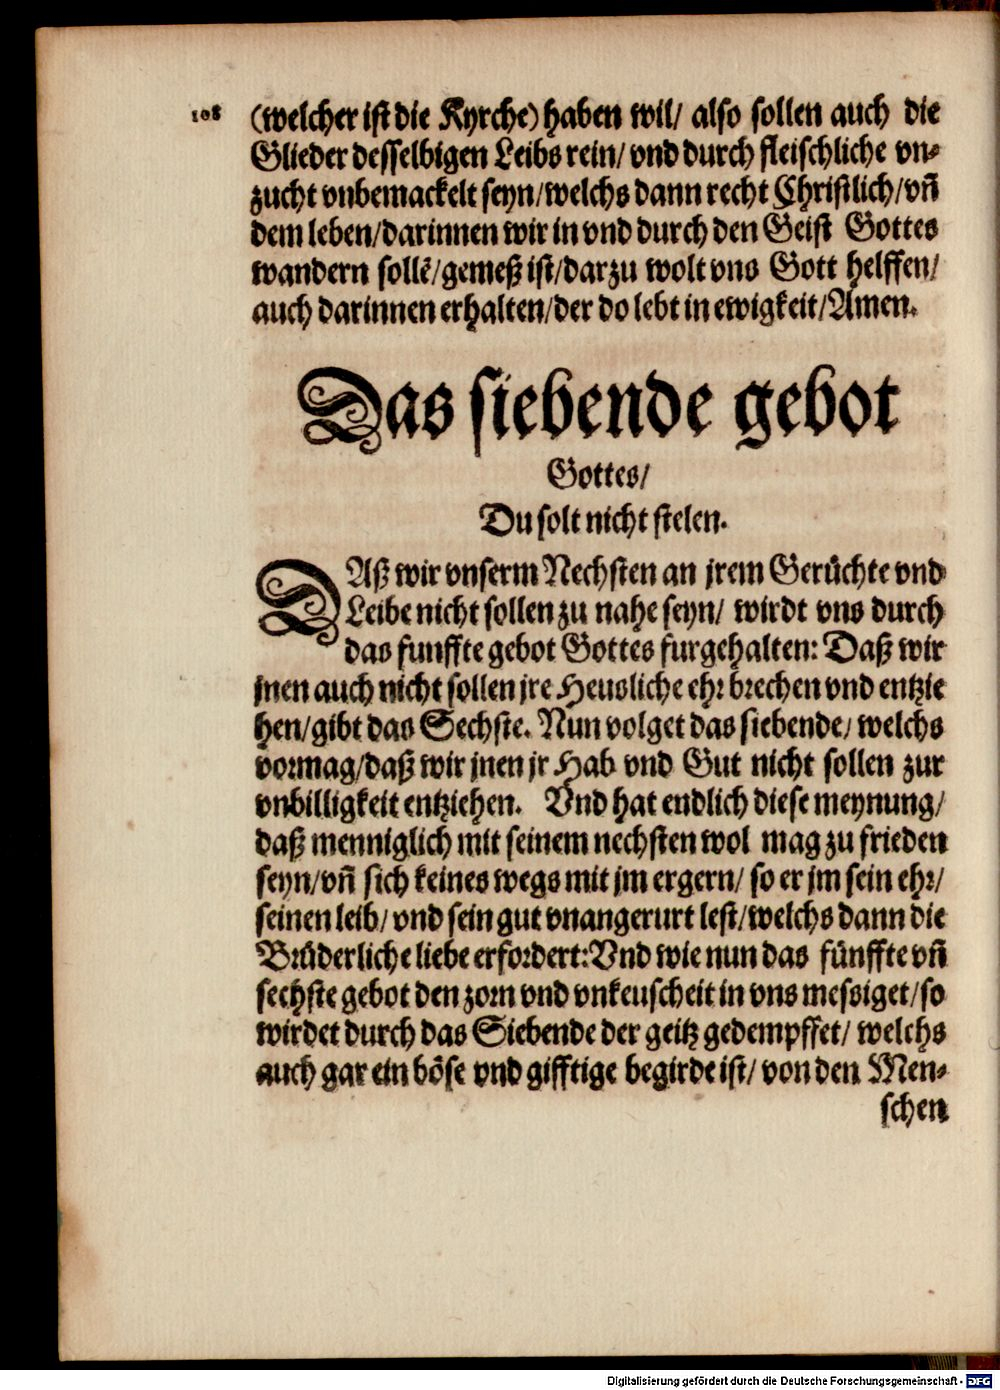 108
(welcher ist die Kyrche) haben wil/ also sollen auch die
Glieder desselbigen Leibs rein/ vnd durch fleischliche vn⸗
zucht vnbemackelt seyn/welchs dann recht Christlich/vñ
dem leben/darinnen wir in vnd durch den Geist Gottes
wandern sollẽ/gemeß ist/darzu wolt vns Gott helffen/
auch darinnen erhalten/der do lebt in ewigkeit/Amen.
Das siebende gebot
Gottes/
Du solt nicht stelen.
DAß wir vnserm Nechsten an jrem Gerüchte vnd
Leibe nicht sollen zu nahe seyn/ wirdt vns durch
das funffte gebot Gottes furgehalten: Daß wir
jnen auch nicht sollen jre Heusliche ehr brechen vnd entzie
hen/gibt das Sechste. Nun volget das siebende/ welchs
vormag/daß wir jnen jr Hab vnd Gut nicht sollen zur
vnbilligkeit entziehen. Vnd hat endlich diese meynung/
daß menniglich mit seinem nechsten wol mag zu frieden
seyn/vñ sich keines wegs mit jm ergern/ so er jm sein ehr/
seinen leib/ vnd sein gut vnangerurt lest/welchs dann die
Brüderliche liebe erfordert:Vnd wie nun das fünffte vñ
sechste gebot den zorn vnd vnkeuscheit in vns messiget/so
wirdet durch das Siebende der geitz gedempffet/ welchs
auch gar ein böse vnd gifftige begirde ist/ von den Men⸗
schen
Digitalisierung gefördert durch die Deutsche Forschungsgemeinschaft - DFG